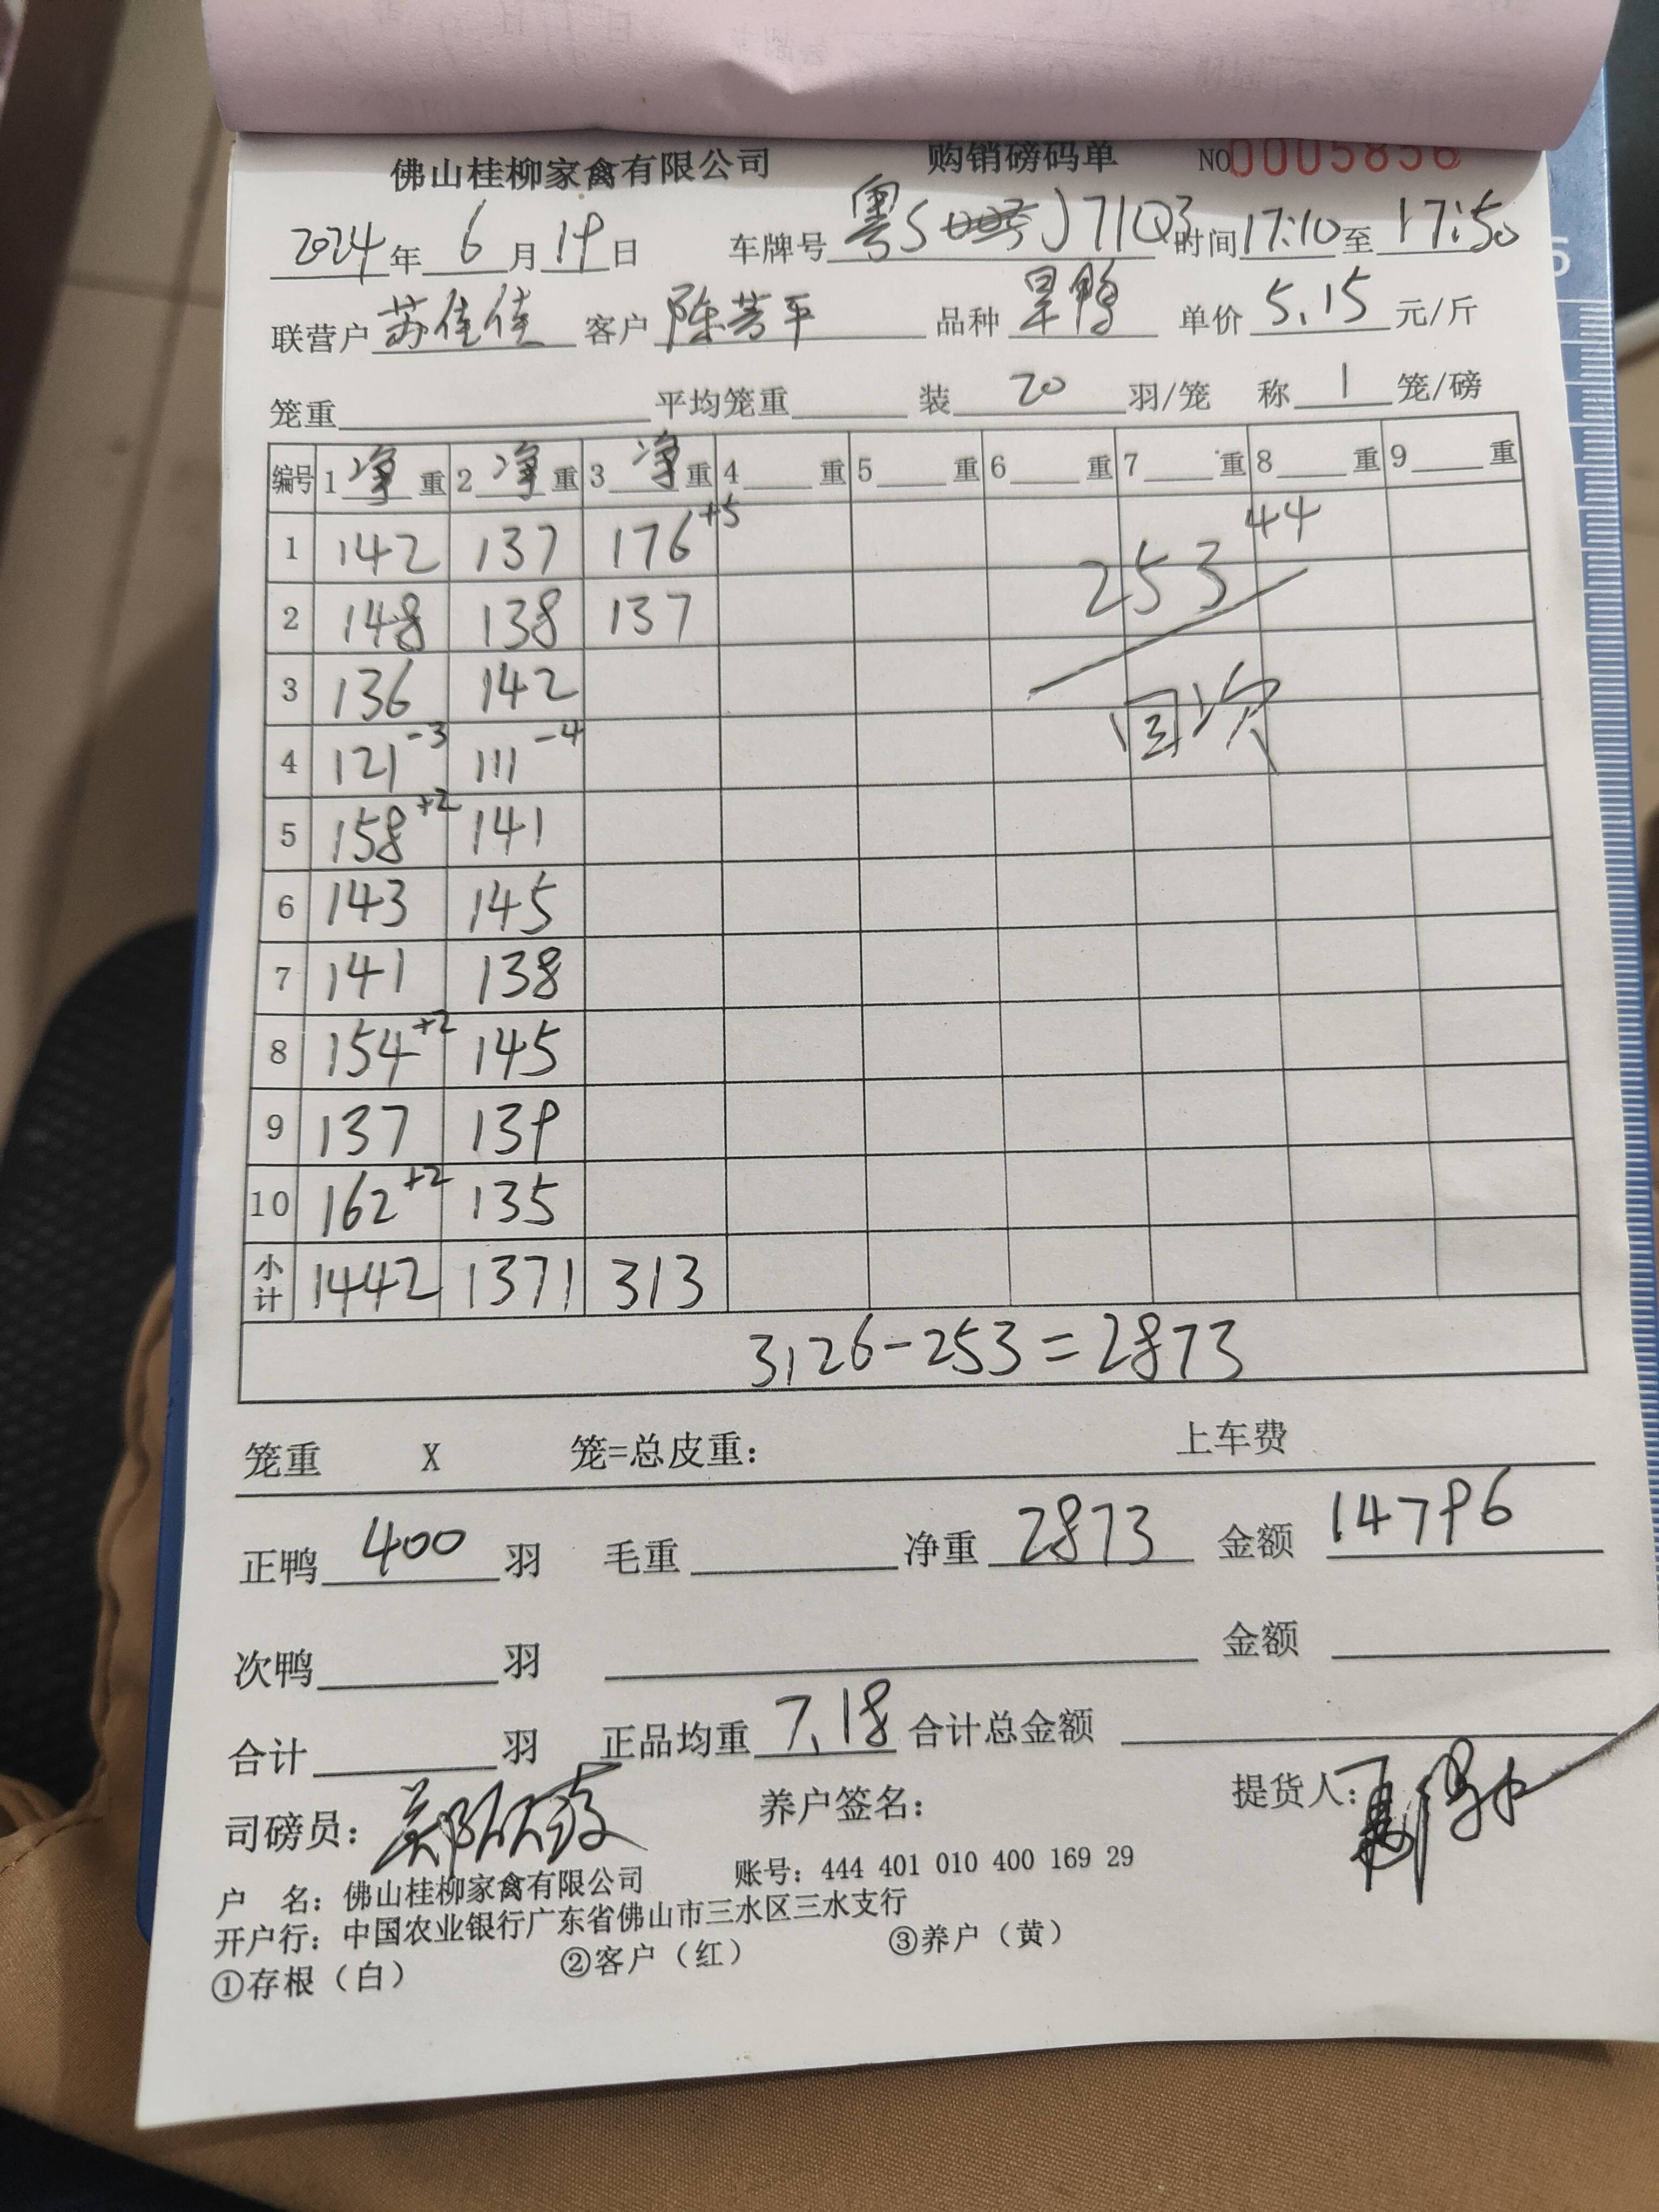 佛山桂柳家禽有限公司 购销磅码单 NO0005856
2024年6月19日 车牌号粤SJ71Q3时间17:10至17:50
联营户苏佳佳 客户陈芳平 品种旱鸭 单价5.15元/斤
笼重 平均笼重 装20羽/笼 称1笼/磅
编号 1净重 2净重 3净重 4重 5重 6重 7重 8重 9重
1 142 137 176+5
253 44
2 148 138 137
3 136 142
回次
4 121-3 111-4
5 158+2 141
6 143 145
7 141 138
8 154+2 145
9 137 139
10 162+2 135
小计 1442 1371 313
3126-253=2873
笼重 X 笼=总皮重： 上车费
正鸭400羽 毛重 净重2873 金额14796
次鸭 羽 金额
合计 羽 正品均重7.18合计总金额
司磅员： 养户签名： 提货人：
户 名：佛山桂柳家禽有限公司 账号：444 401 010 400 169 29
开户行：中国农业银行广东省佛山市三水区三水支行
①存根（白） ②客户（红） ③养户（黄）